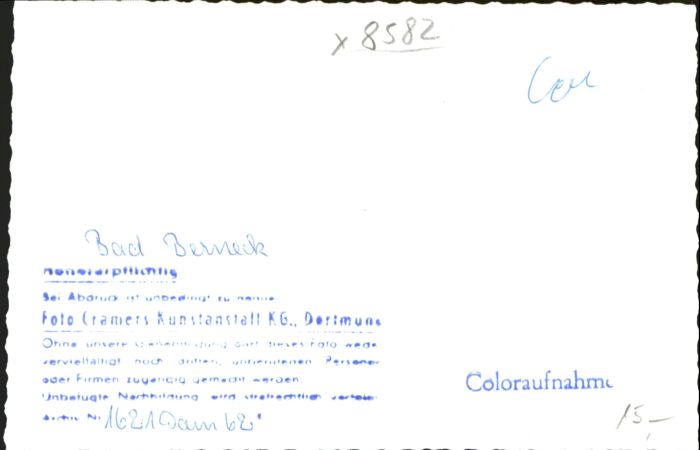 x 8582
Bad Berneck
honorarpflichtig
Bei Abdruck ist unbedingt zu nenne
Foto Cramers Kunstanstalt KG., Dortmund
Ohne unsere Genehmigung darf dieses Foto wede
vervielfältigt noch dritten, unberufenen Persone
oder Firmen zugängig gemacht werden.
Unbefugte Nachbildung wird strafrechtlich verfol
Archiv Nr. 1621 Dam 62
Coloraufnahme
15,—